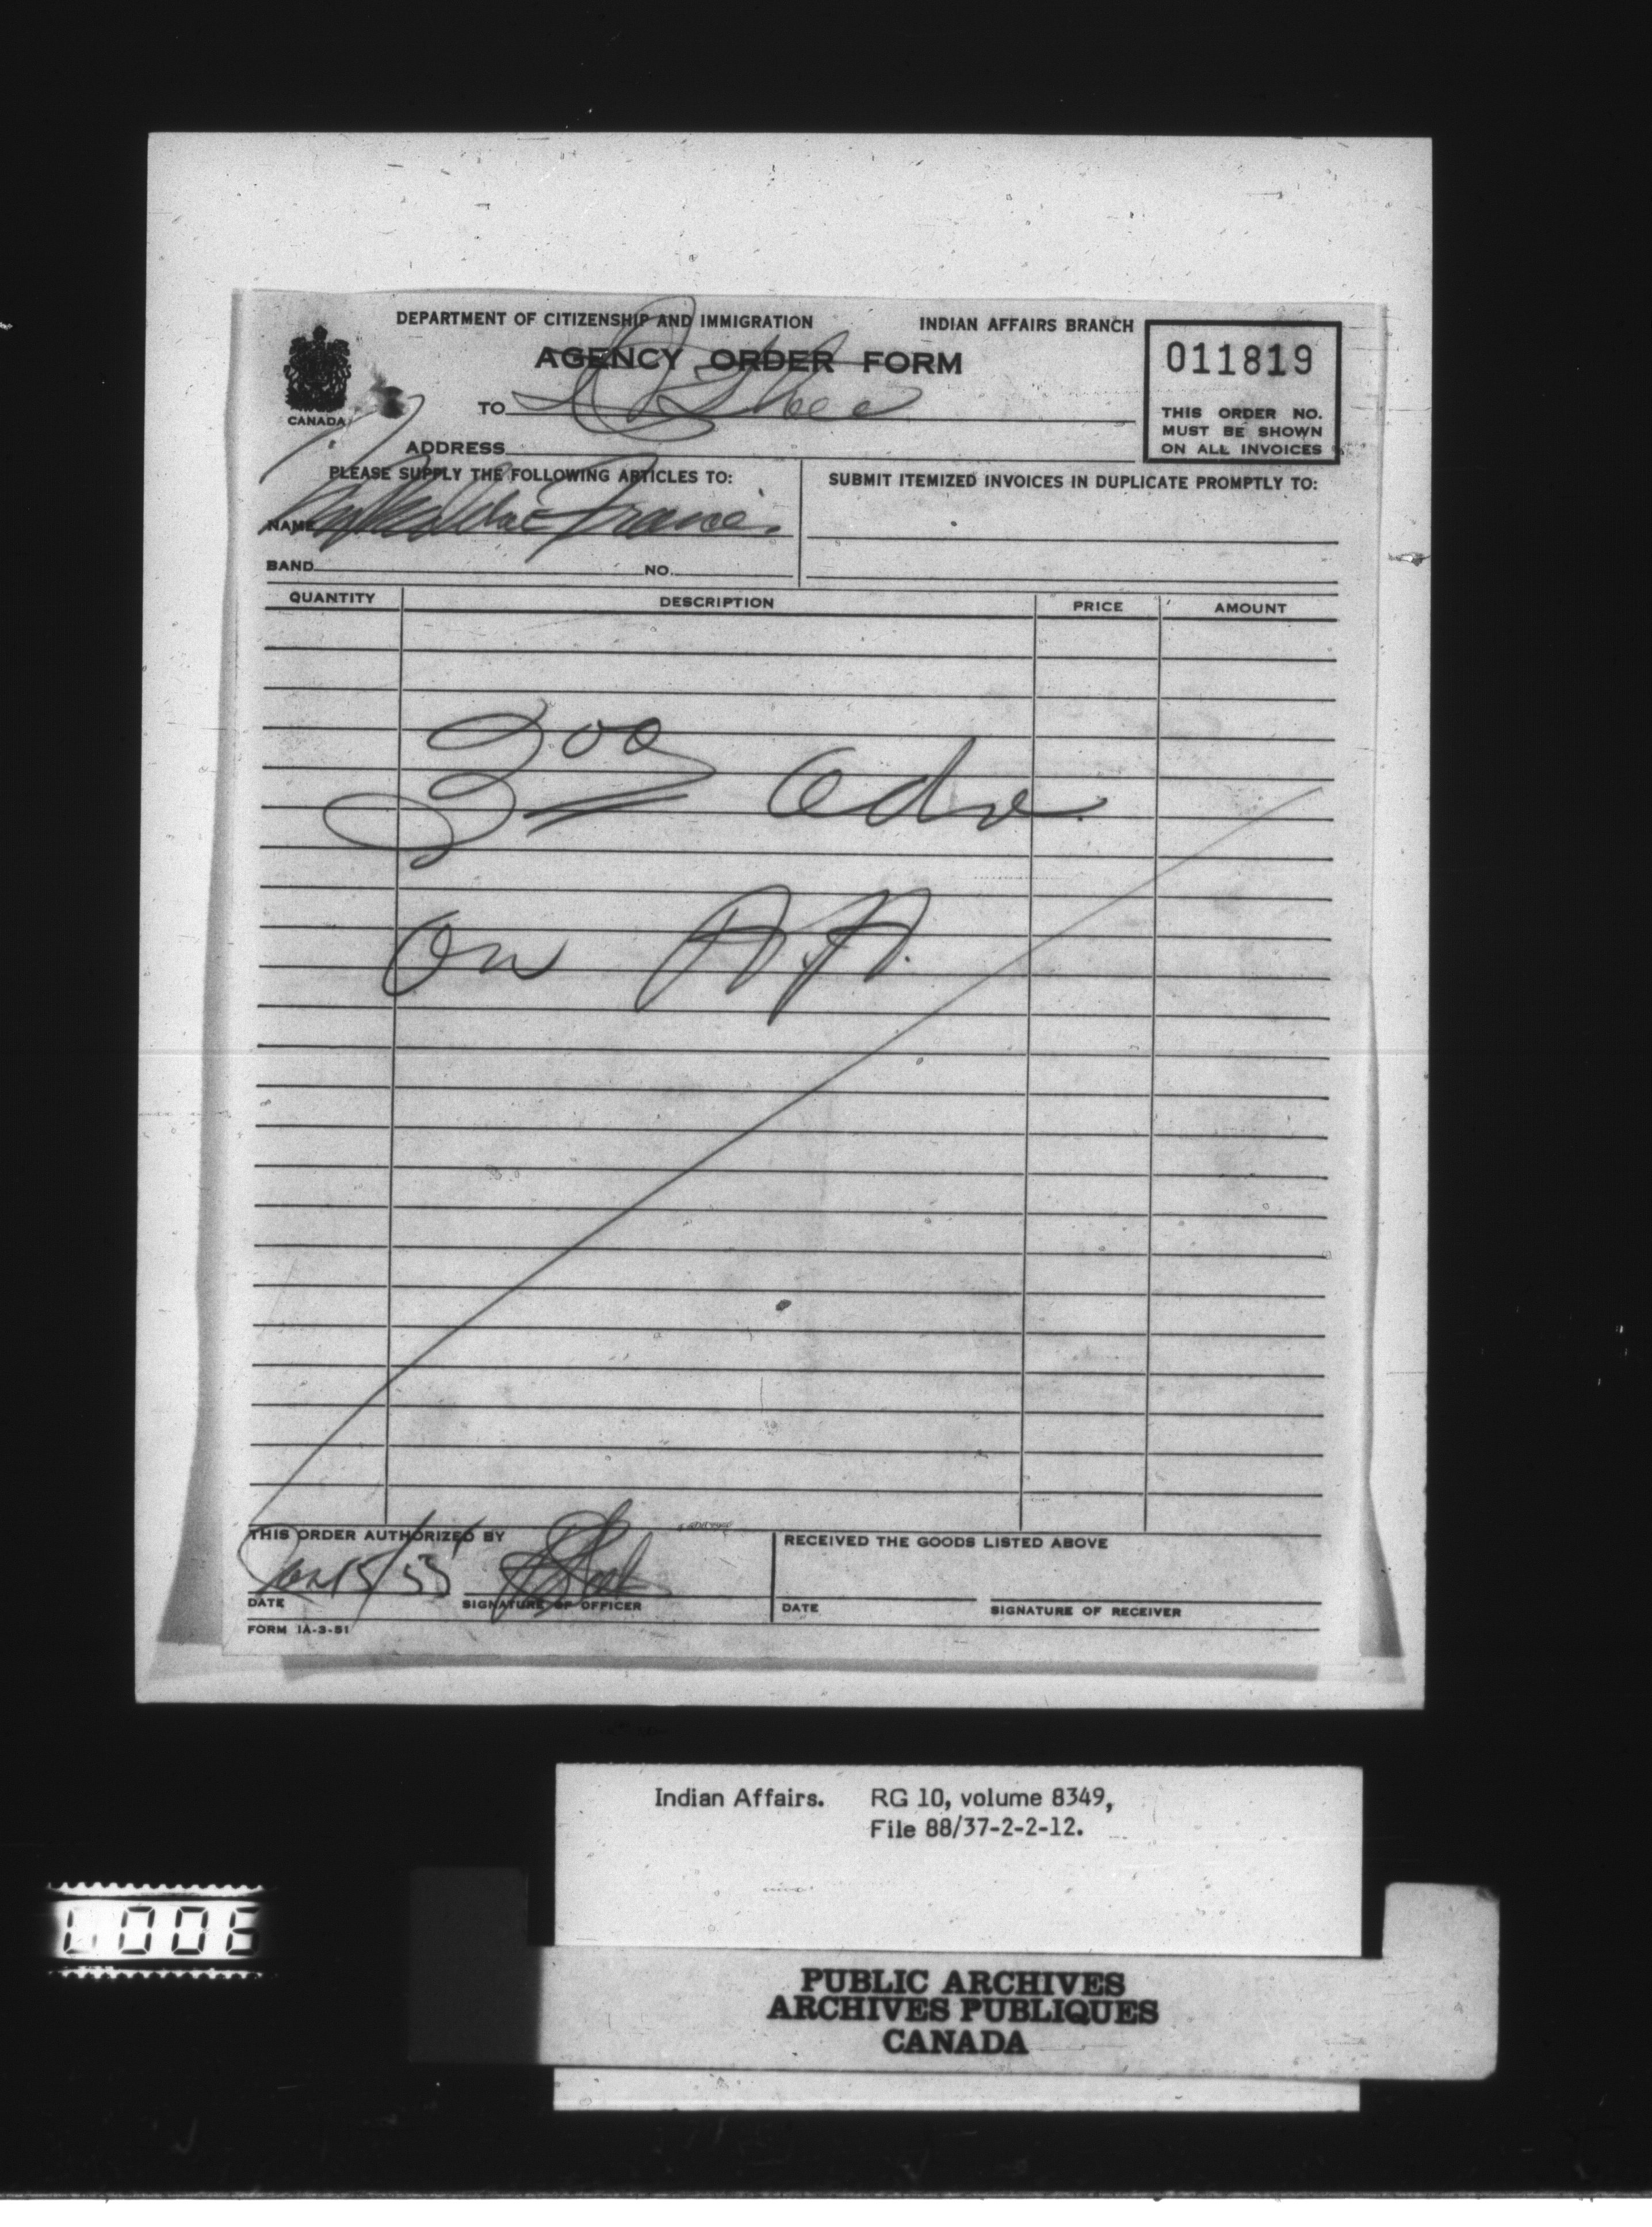 DEPARTMENT OF CITIZENSHIP AND IMMIGRATION INDIAN AFFAIRS BRANCH
AGENCY ORDER FORM
011819
THIS ORDER NO.
MUST BE SHOWN
ON ALL INVOICES
CANADA
TO
ADDRESS
PLEASE SUPPLY THE FOLLOWING ARTICLES TO:
SUBMIT ITEMIZED INVOICES IN DUPLICATE PROMPTLY TO:
NAME
BAND NO.
QUANTITY DESCRIPTION PRICE AMOUNT
3 00 adv.
on
THIS ORDER AUTHORIZED BY
RECEIVED THE GOODS LISTED ABOVE
Jan 15/55
DATE SIGNATURE OF OFFICER
DATE SIGNATURE OF RECEIVER
FORM IA-3-51
Indian Affairs. RG 10, volume 8349,
File 88/37-2-2-12.
PUBLIC ARCHIVES
ARCHIVES PUBLIQUES
CANADA